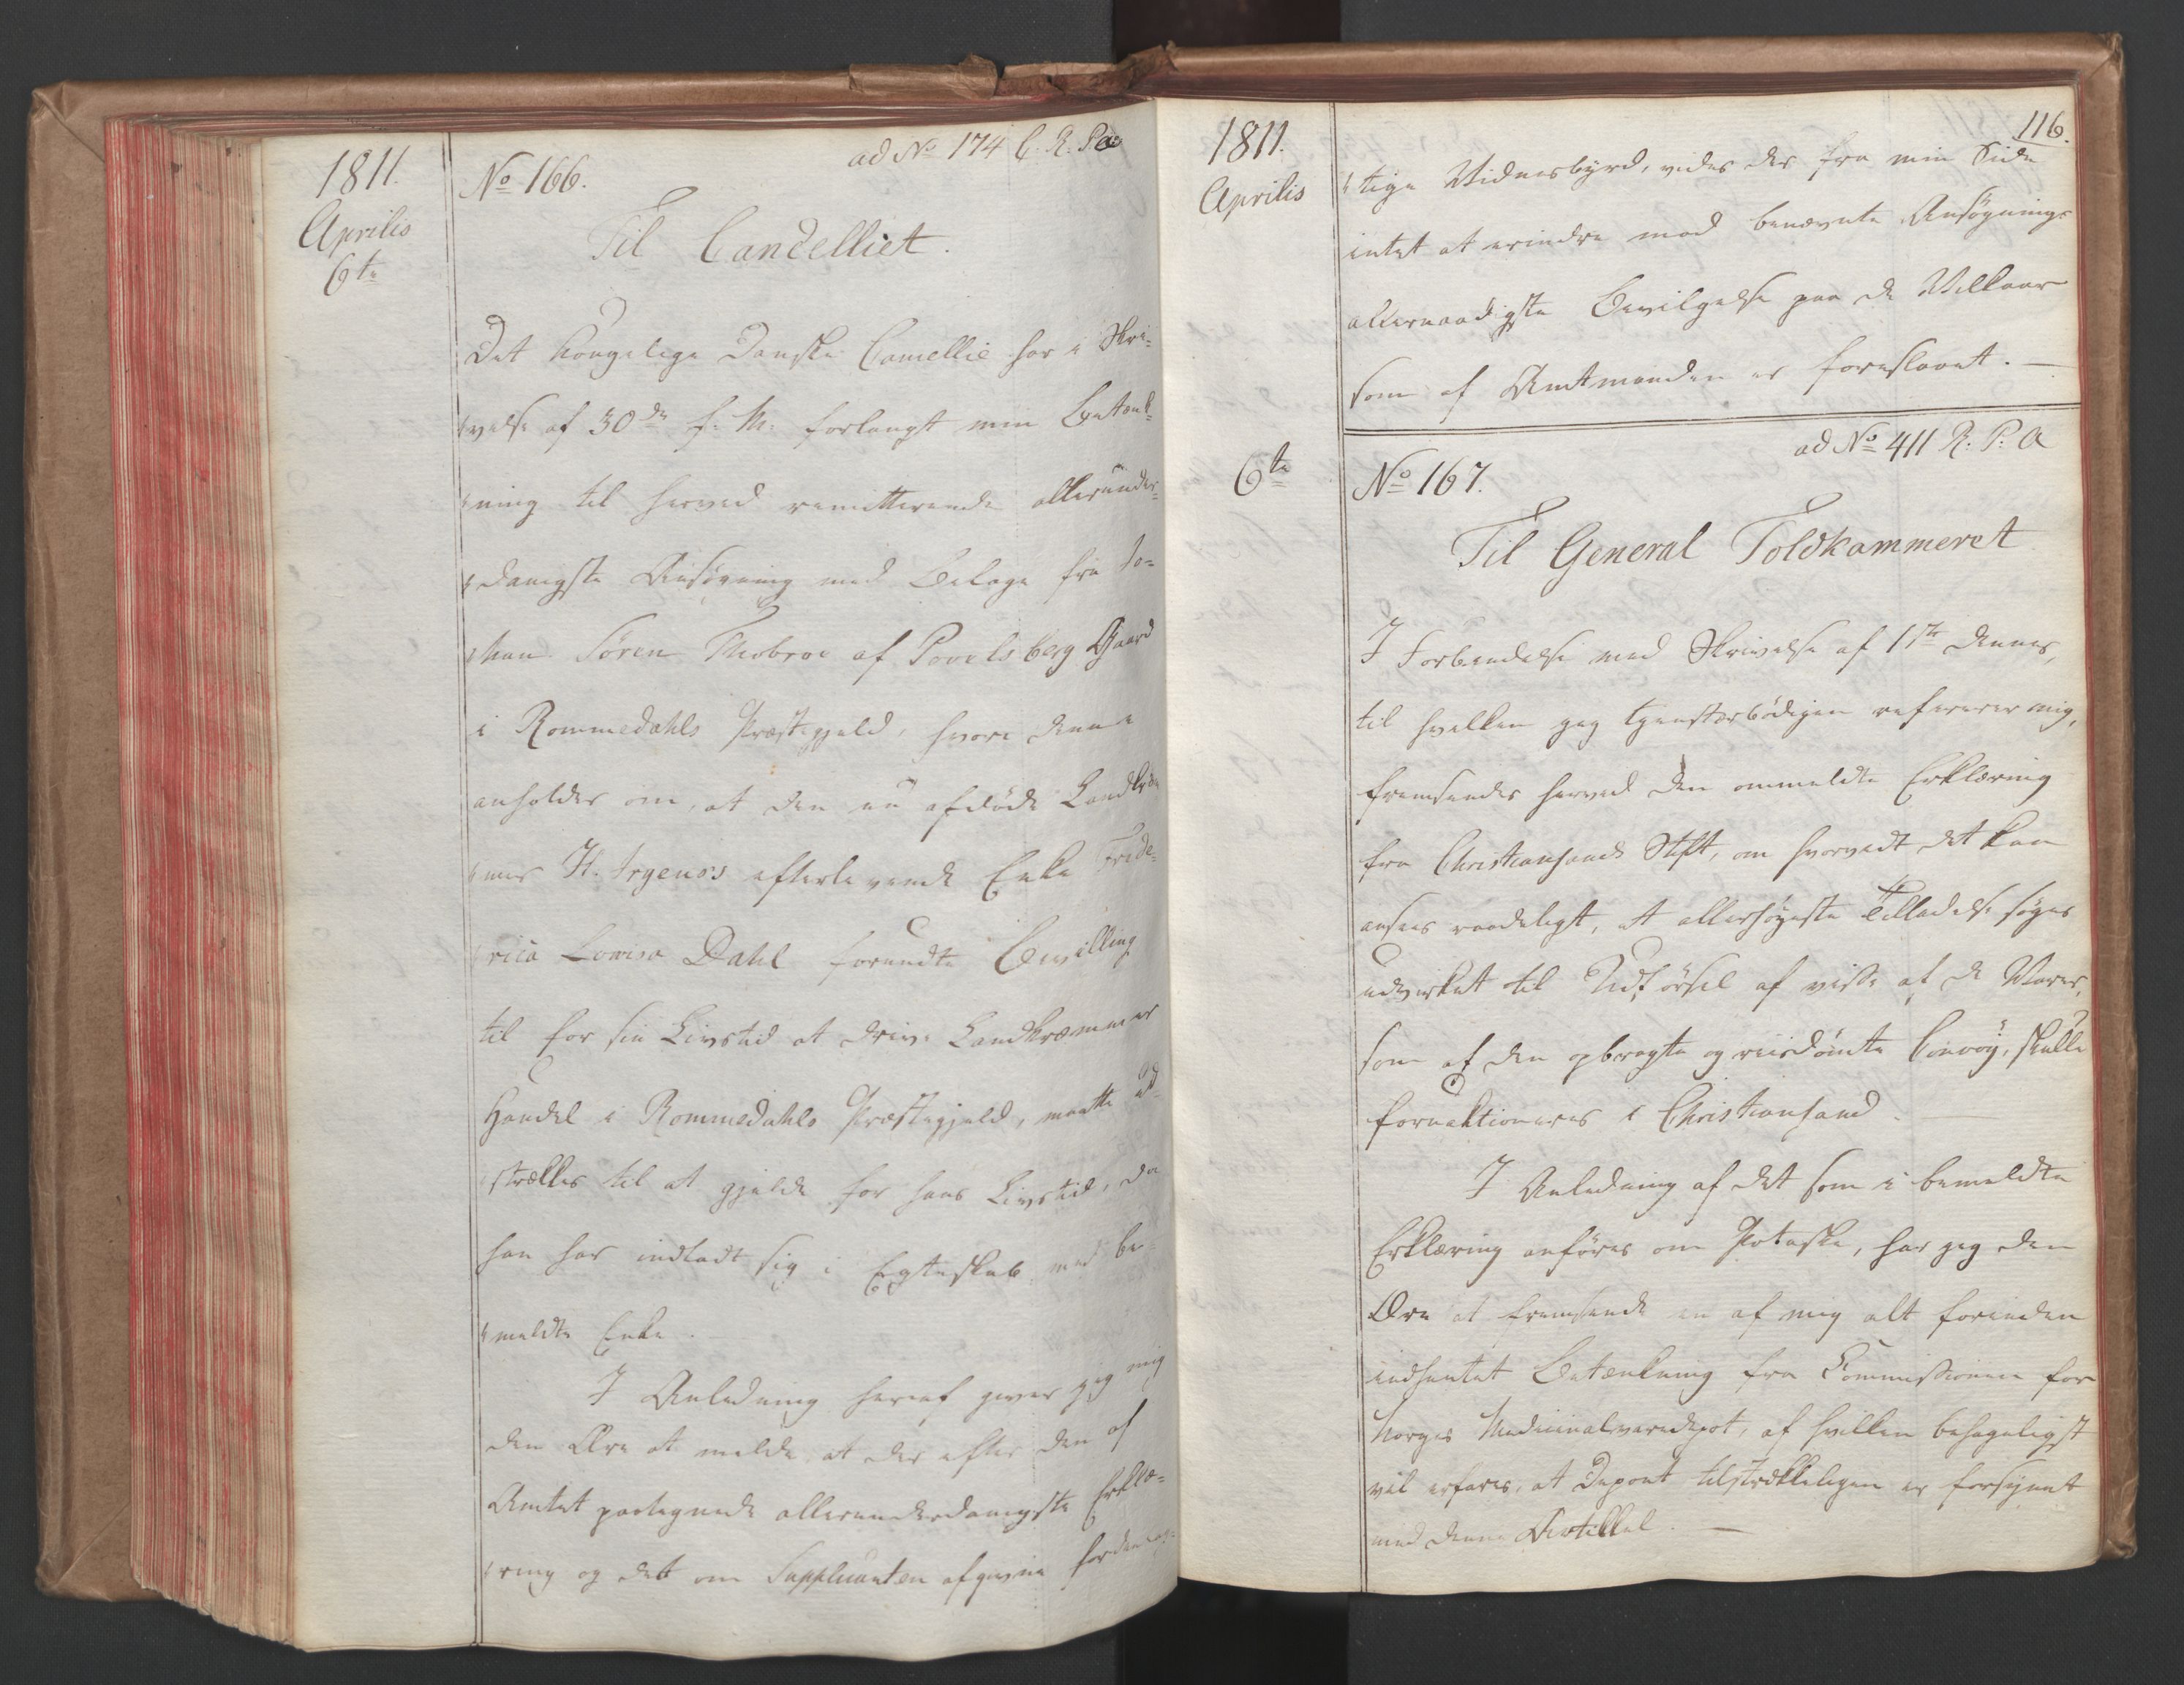 1811.
Aprilis
6te
No 166.
ad No 174 C. R. P a
Til Cancelliet.
Det Kongelige Danske Cancellie har i Skri-
velse af 30de f. M. forlangt min Betænk-
ning til herved remitterende allerunder-
danigste Ansøgning med Bilage fra Jo-
han Sören Thobroe af Povelsberg Gaard
i Rommedahls Præstegjeld, hvori denne
anholder om, at den nu afdöde Landkræm-
mers H. Irgens's efterlevende Enke Fride-
rica Lovisa Dahl forundte Bevilling
til for sin Livstid at drive Landkræmmer
Handel i Rommedahls Præstegjeld, maatte ud-
strækkes til at gjelde for hans Livstid, da
han har indladt sig i Egteskab med be-
meldte Enke.
I Anledning heraf giver jeg mig
den Ære at melde at der efter den af
Amtet paategnede allerunderdanigste Erklæ-
ring og det om Supplicanten afgivne fordeelag-
116.
1811.
Aprilis
tige Vidnesbyrd, vides der fra min Side
intet at erindre mod benævnte Ansøgnings
allernaadigste Bevilgelse paa de Vilkaar
som af Amtmanden er foreslaaet. —
6te
ad No 411 R. P. A
No 167.
Til General Toldkammeret
I Forbindelse med Skrivelse af 1ste dennes,
til hvilken jeg tjenstærbödigen refererer mig,
fremsendes herved den ommeldte Erklæring
fra Christiansands Stift, om hvorvidt det kan
ansees raadeligt, at allerhøyeste Tilladelse søges
udvirket til Udförsel af visse af de Varer,
som af den opbragte og priisdömte Convoy, skulle
forauktioneres i Christiansand. —
I Anledning af det som i bemeldte
Erklæring anföres om Potaske, har jeg den
Ære at fremsende en af mig alt forinden
indhentet Betænkning fra Commissionen for
Norges Medicinalvaredepot, af hvilken behageligst
vil erfares, at Depoet tilstrækkeligen er forsynet
med denne Artikkel. —